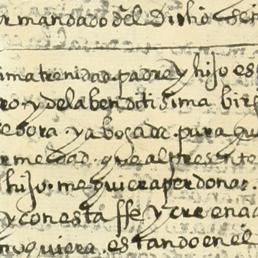 or mandado del Dicho Señ
ima trenidad padre y hijo es
ro y dela benditisima birg
ñora y abogada para qu
rmedad que al presente
hijo me quiera perdonar
y con esta ffe y creenc
no quiera estando en el